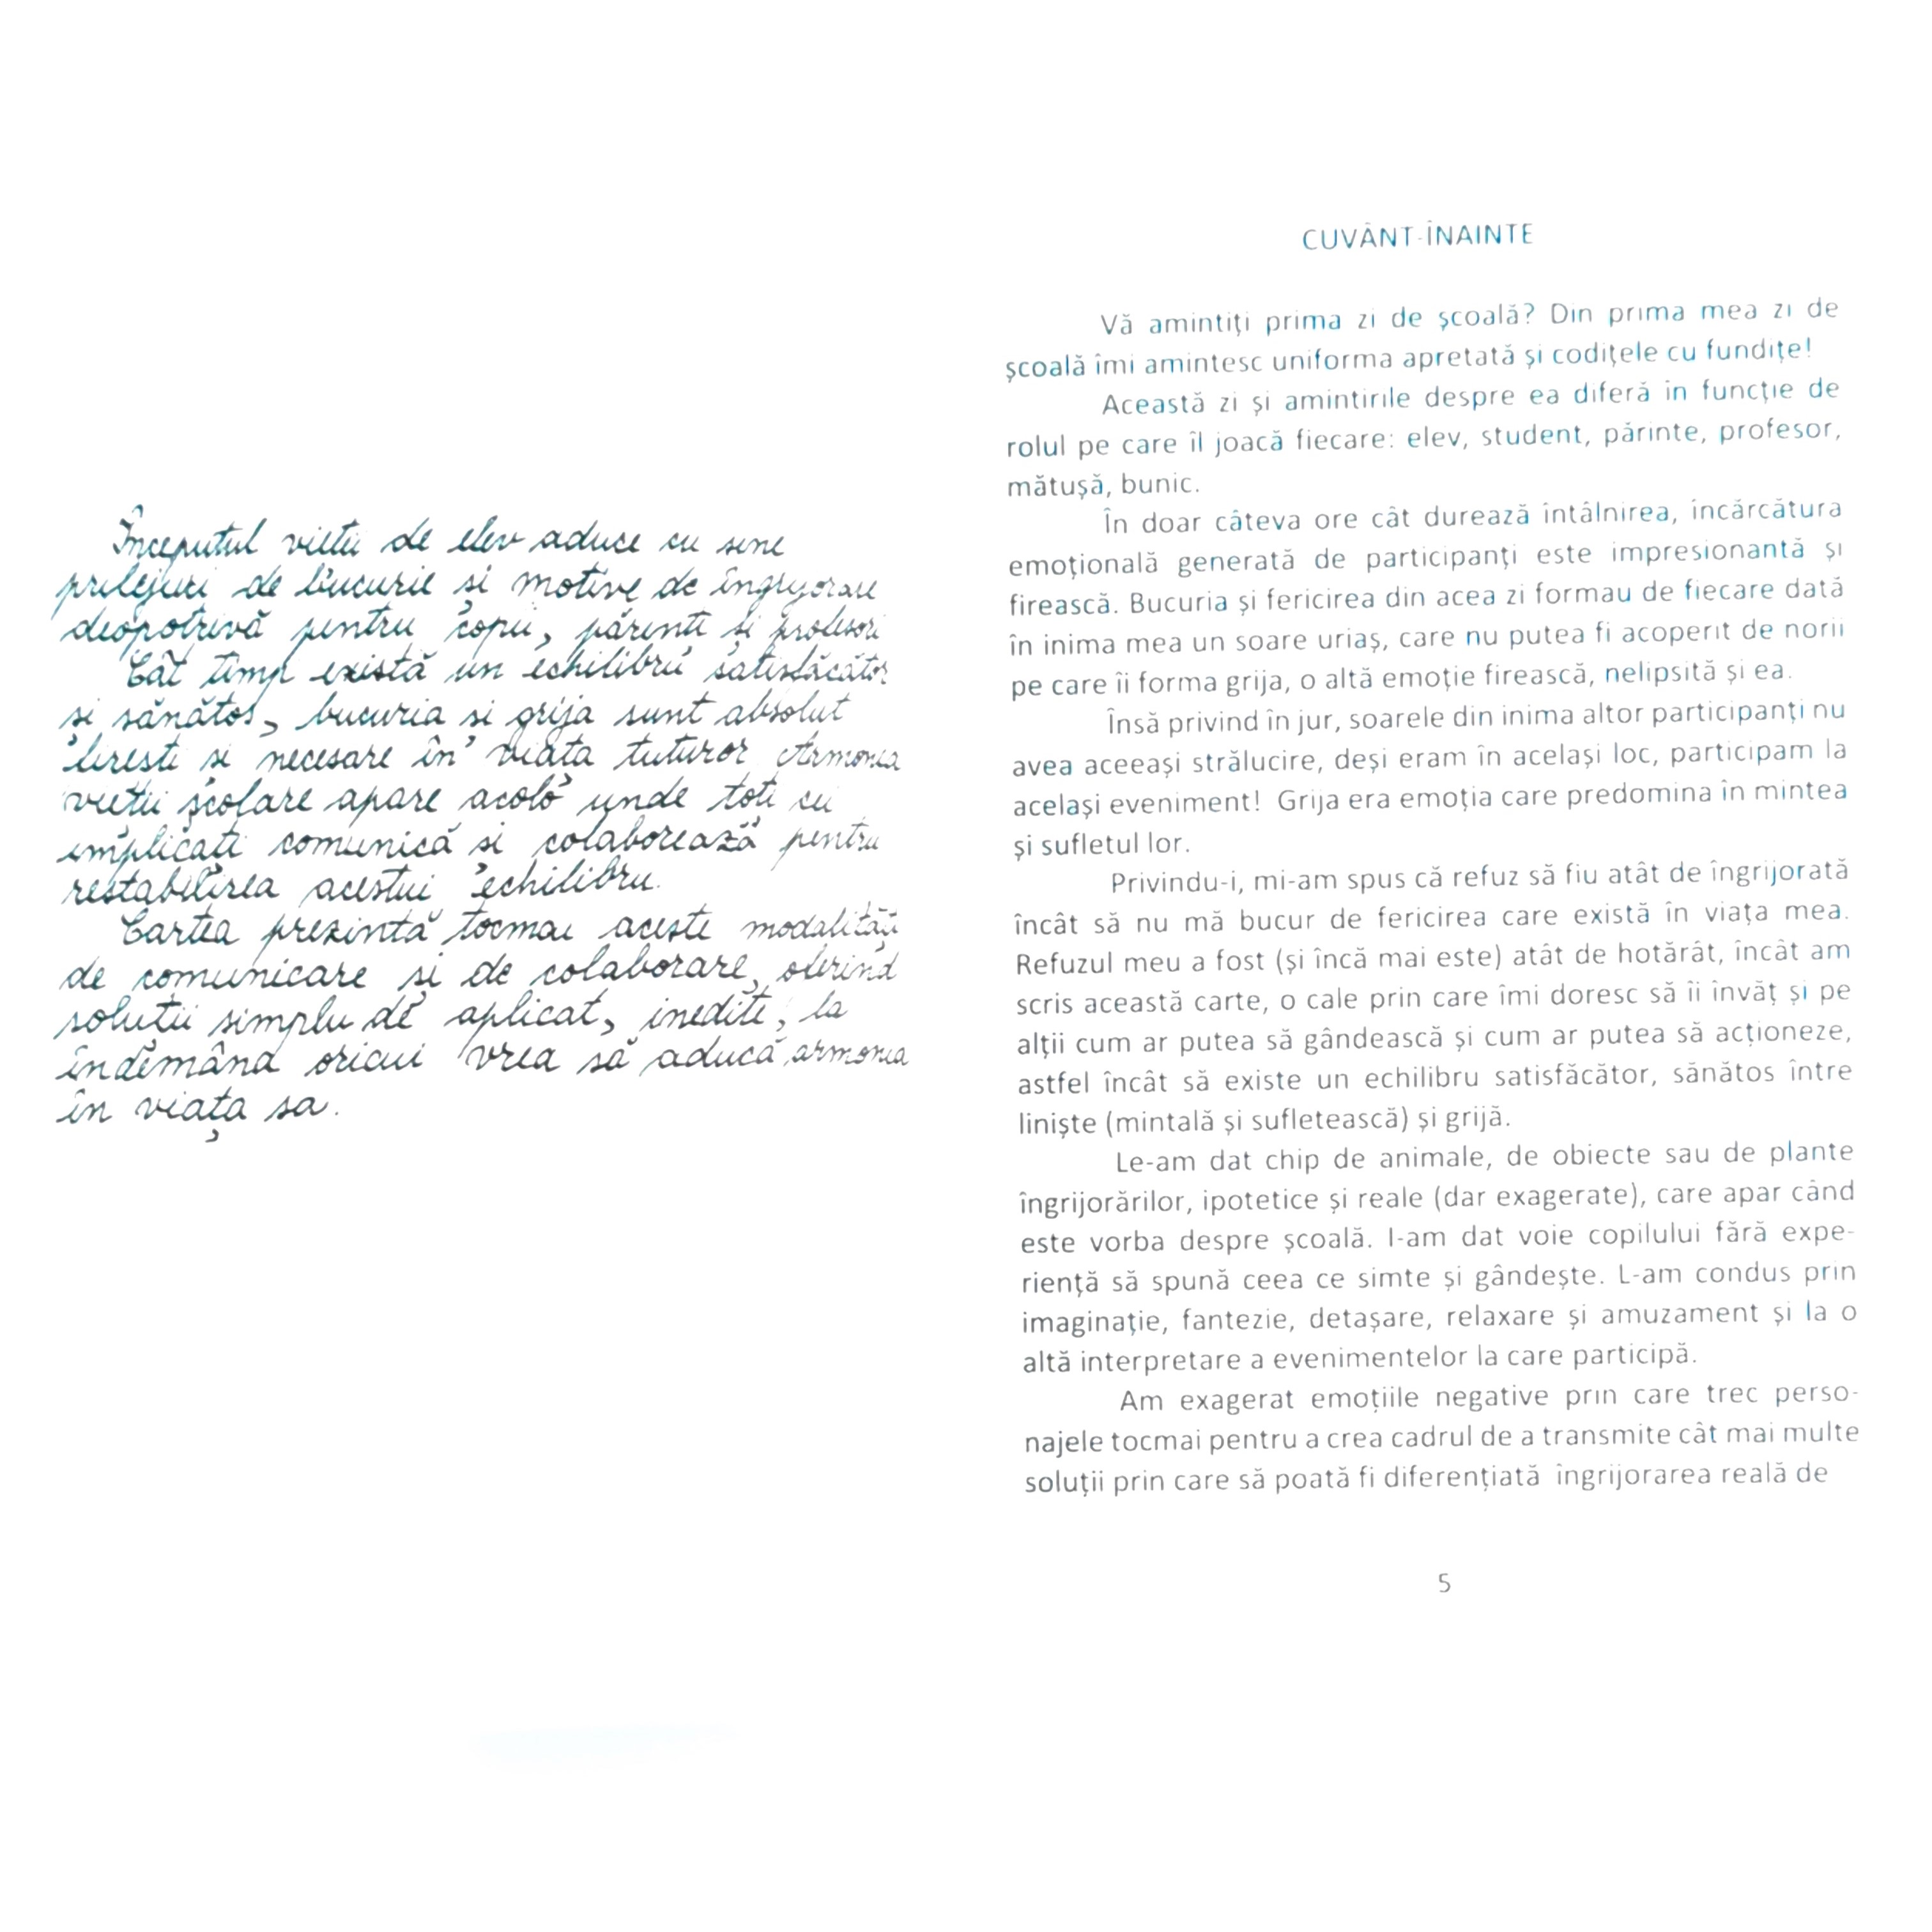 Începutul vieții de elev aduce cu sine
prilejuri de bucurie și motive de îngrijorare
deopotrivă pentru copii, părinți și profesori
Cât timp există un echilibru satisfăcător
și sănătos, bucuria și grija sunt absolut
firești și necesare în viața tuturor Armonia
vieții școlare apare acolo unde toți cei
implicați comunică și colaborează pentru
restabilirea acestui echilibru.
Cartea prezintă tocmai aceste modalități
de comunicare și de colaborare, oferind
soluții simplu de aplicat, inedite, la
îndemâna oricui vrea să aducă armonia
în viața sa.
CUVÂNT-ÎNAINTE
Vă amintiți prima zi de școală? Din prima mea zi de
școală îmi amintesc uniforma apretată și codițele cu fundițe!
Această zi și amintirile despre ea diferă în funcție de
rolul pe care îl joacă fiecare: elev, student, părinte, profesor,
mătușă, bunic.
În doar câteva ore cât durează întâlnirea, încărcătura
emoțională generată de participanți este impresionantă și
firească. Bucuria și fericirea din acea zi formau de fiecare dată
în inima mea un soare uriaș, care nu putea fi acoperit de norii
pe care îi forma grija, o altă emoție firească, nelipsită și ea.
Însă privind în jur, soarele din inima altor participanți nu
avea aceeași strălucire, deși eram în același loc, participam la
același eveniment! Grija era emoția care predomina în mintea
și sufletul lor.
Privindu-i, mi-am spus că refuz să fiu atât de îngrijorată
încât să nu mă bucur de fericirea care există în viața mea.
Refuzul meu a fost (și încă mai este) atât de hotărât, încât am
scris această carte, o cale prin care îmi doresc să îi învăț și pe
alții cum ar putea să gândească și cum ar putea să acționeze,
astfel încât să existe un echilibru satisfăcător, sănătos între
liniște (mintală și sufletească) și grijă.
Le-am dat chip de animale, de obiecte sau de plante
îngrijorărilor, ipotetice și reale (dar exagerate), care apar când
este vorba despre școală. I-am dat voie copilului fără expe-
riență să spună ceea ce simte și gândește. L-am condus prin
imaginație, fantezie, detașare, relaxare și amuzament și la o
altă interpretare a evenimentelor la care participă.
Am exagerat emoțiile negative prin care trec perso-
najele tocmai pentru a crea cadrul de a transmite cât mai multe
soluții prin care să poată fi diferențiată îngrijorarea reală de
5